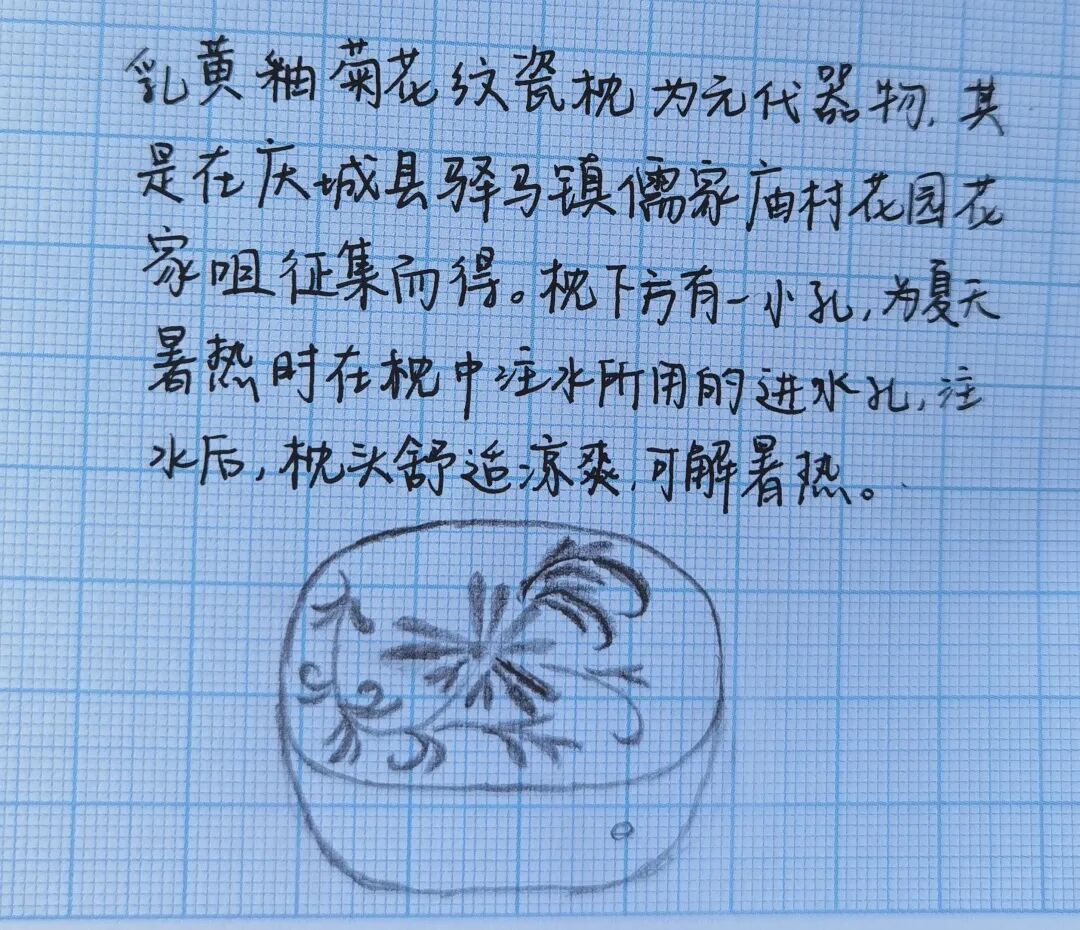 乳黄釉菊花纹瓷枕为元代器物,其
是在庆城县驿马镇儒家庙村花园花
家咀征集而得。枕下方有一小孔,为夏天
暑热时在枕中注水所用的进水孔,注
水后,枕头舒适凉爽,可解暑热。